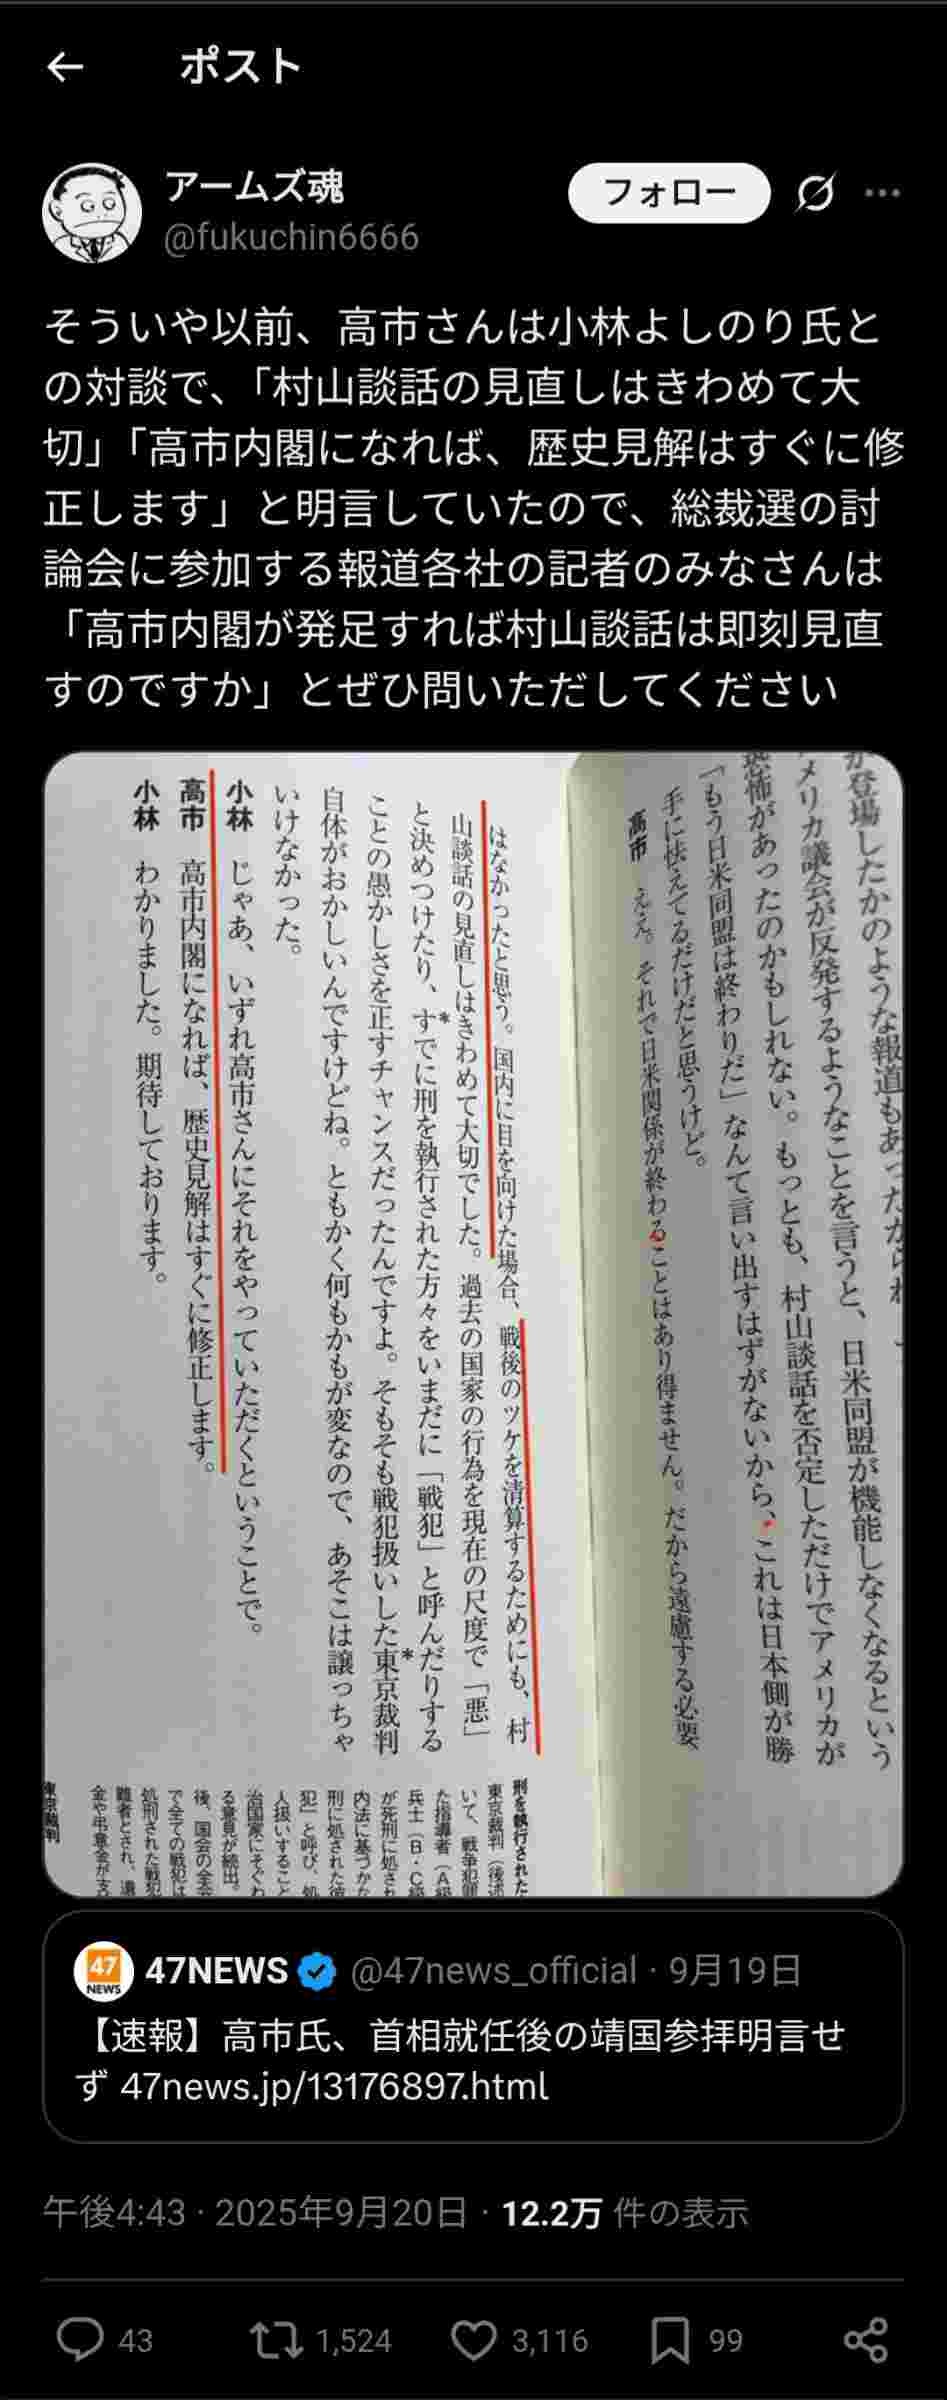 ポスト
アームズ魂
@fukuchin6666
フォロー
そういや以前、高市さんは小林よしのり氏と
の対談で、「村山談話の見直しはきわめて大
切」「高市内閣になれば、歴史見解はすぐに修
正します」と明言していたので、総裁選の討
論会に参加する報道各社の記者のみなさんは
「高市内閣が発足すれば村山談話は即刻見直
すのですか」とぜひ問いただしてください
が登場したかのような報道もあったからね
メリカ議会が反発するようなことを言うと、日米同盟が機能しなくなるという
恐怖があったのかもしれない。もっとも、村山談話を否定しただけでアメリカが
「もう日米同盟は終わりだ」なんて言い出すはずがないから、これは日本側が勝
手に怯えてるだけだと思うけど。
高市 ええ。それで日米関係が終わることはあり得ません。だから遠慮する必要
はなかったと思う。国内に目を向けた場合、戦後のツケを清算するためにも、村
山談話の見直しはきわめて大切でした。過去の国家の行為を現在の尺度で「悪」
と決めつけたり、すでに刑を執行された方々をいまだに「戦犯」と呼んだりする
ことの愚かしさを正すチャンスだったんですよ。そもそも戦犯扱いした東京裁判
自体がおかしいんですけどね。ともかく何もかもが変なので、あそこは譲っちゃ
いけなかった。
小林 じゃあ、いずれ高市さんにそれをやっていただくということで。
高市 高市内閣になれば、歴史見解はすぐに修正します。
小林 わかりました。期待しております。
刑を執行された
東京裁判（後述
いて、戦争犯罪
た指導者（A級
兵士（B・C級
が死刑に処され
内法に基づかな
刑に処された彼
犯」と呼び、犯
人扱いすること
治国家にそぐわ
る意見が続出。
後、国会の全会
で全ての戦犯は
処刑された戦犯
難者とされ、遺
金や弔意金が支
東京裁判
47NEWS @47news_official · 9月19日
【速報】高市氏、首相就任後の靖国参拝明言せ
ず 47news.jp/13176897.html
午後4:43 · 2025年9月20日 · 12.2万 件の表示
43 1,524 3,116 99